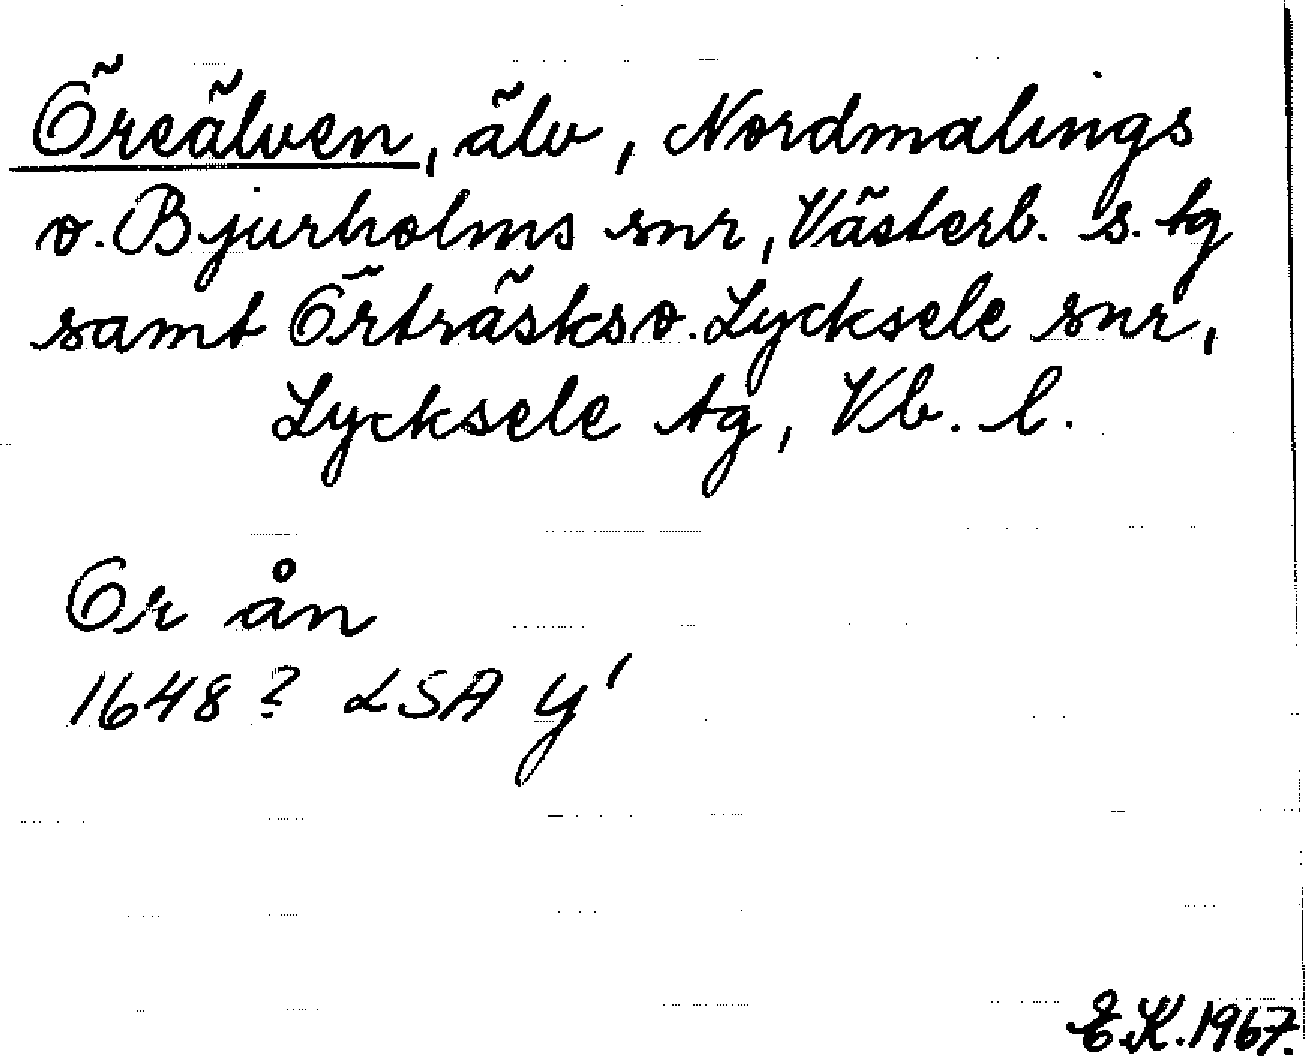 Öreälven, älv, Nordmalings
o. Bjurholms snr, Västerb. s. tg
samt Örträsks o. Lycksele snr,
Lycksele tg, Vb. l.
Or ån
1648? LSA y'
E.K. 1967.